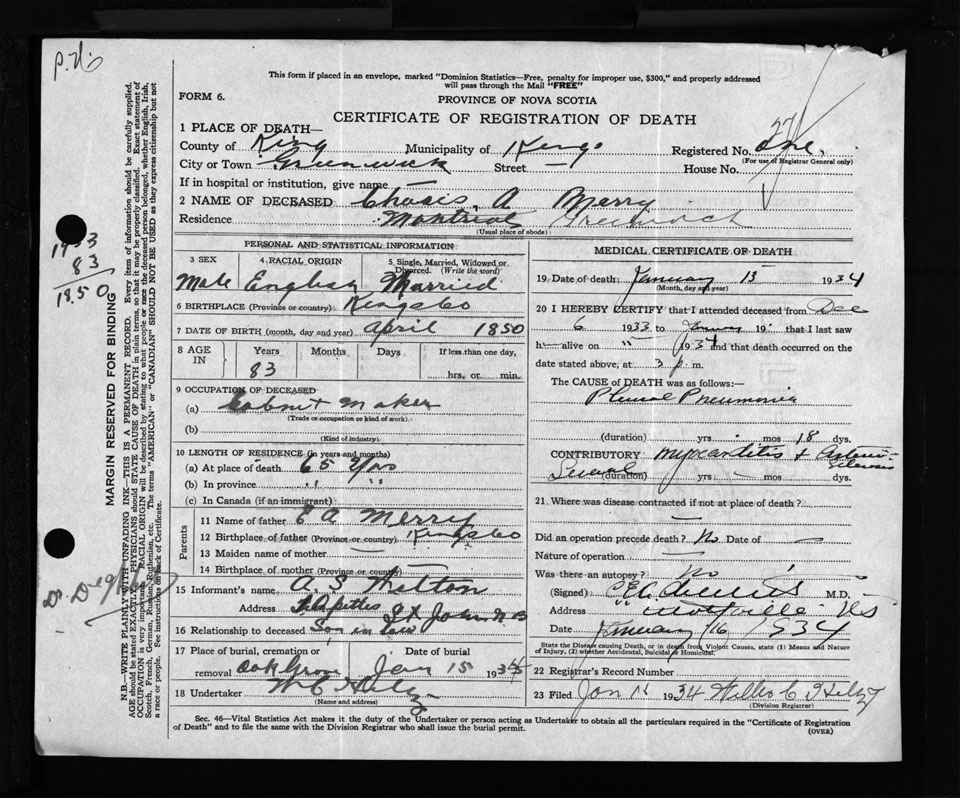 This form if placed in an envelope, marked "Dominion Statistics—Free, penalty for improper use, $300," and properly addressed
will pass through the Mail "FREE"
FORM 6.
PROVINCE OF NOVA SCOTIA
CERTIFICATE OF REGISTRATION OF DEATH
1 PLACE OF DEATH—
County of Kings Municipality of Kings Registered No.
(For use of Registrar General only)
City or Town Greenwich Street — House No.
If in hospital or institution, give name
2 NAME OF DECEASED A Merry
Residence Montreal Greenwich
(Usual place of abode)
PERSONAL AND STATISTICAL INFORMATION
3 SEX 4 RACIAL ORIGIN 5 Single, Married, Widowed or Divorced. (Write the word)
Male English Married
6 BIRTHPLACE (Province or country) Kings Co
7 DATE OF BIRTH (month, day and year) April 1850
8 AGE IN Years Months Days If less than one day,
83 hrs. or min.
9 OCCUPATION OF DECEASED
(a) Cabnet Maker
(Trade or occupation or kind of work)
(b)
(Kind of industry)
10 LENGTH OF RESIDENCE (in years and months)
(a) At place of death 65 yrs
(b) In province " "
(c) In Canada (if an immigrant)
Parents
11 Name of father E A Merry
12 Birthplace of father (Province or country) Kings Co
13 Maiden name of mother —
14 Birthplace of mother (Province or country) —
15 Informant's name A. S.
Address St John N B
16 Relationship to deceased Son in law
17 Place of burial, cremation or removal Date of burial
Oak Grove Jan 15 1934
18 Undertaker W C
(Name and address)
MEDICAL CERTIFICATE OF DEATH
19 Date of death January 15 1934
(Month, day and year)
20 I HEREBY CERTIFY that I attended deceased from Dec
6 1933 to 19 that I last saw
h alive on " 1934 and that death occurred on the
date stated above, at 3 p. m.
The CAUSE OF DEATH was as follows:
Pleural Pneumonia
(duration) yrs. mos. 18 dys.
CONTRIBUTORY Myocarditis &
(duration) yrs. mos. dys.
21. Where was disease contracted if not at place of death?
—
Did an operation precede death? No Date of —
Nature of operation —
Was there an autopsy? No
(Signed) M.D.
Address Wolfville NS
Date January 16 1934
State the Disease causing Death, or in death from Violent Causes, state (1) Means and Nature
of Injury, (2) whether Accidental, Suicidal or Homicidal.
22 Registrar's Record Number
23 Filed Jan 1934 C
(Division Registrar)
Sec. 46—Vital Statistics Act makes it the duty of the Undertaker or person acting as Undertaker to obtain all the particulars required in the "Certificate of Registration
of Death" and to file the same with the Division Registrar who shall issue the burial permit.
(OVER)
1933
83
1850
MARGIN RESERVED FOR BINDING
N.B.—WRITE PLAINLY WITH UNFADING INK—THIS IS A PERMANENT RECORD. Every item of information should be carefully supplied.
AGE should be stated EXACTLY. PHYSICIANS should STATE CAUSE OF DEATH in plain terms, so that it may be properly classified. Exact statement of
OCCUPATION is very important. RACIAL ORIGIN will be described by stating to what people or race the deceased person belonged, whether English, Irish,
Scotch, French, German, Russian, Ruthenian, etc. The terms "AMERICAN" or "CANADIAN" SHOULD NOT BE USED as they express citizenship but not
a race or people. See instructions on back of Certificate.